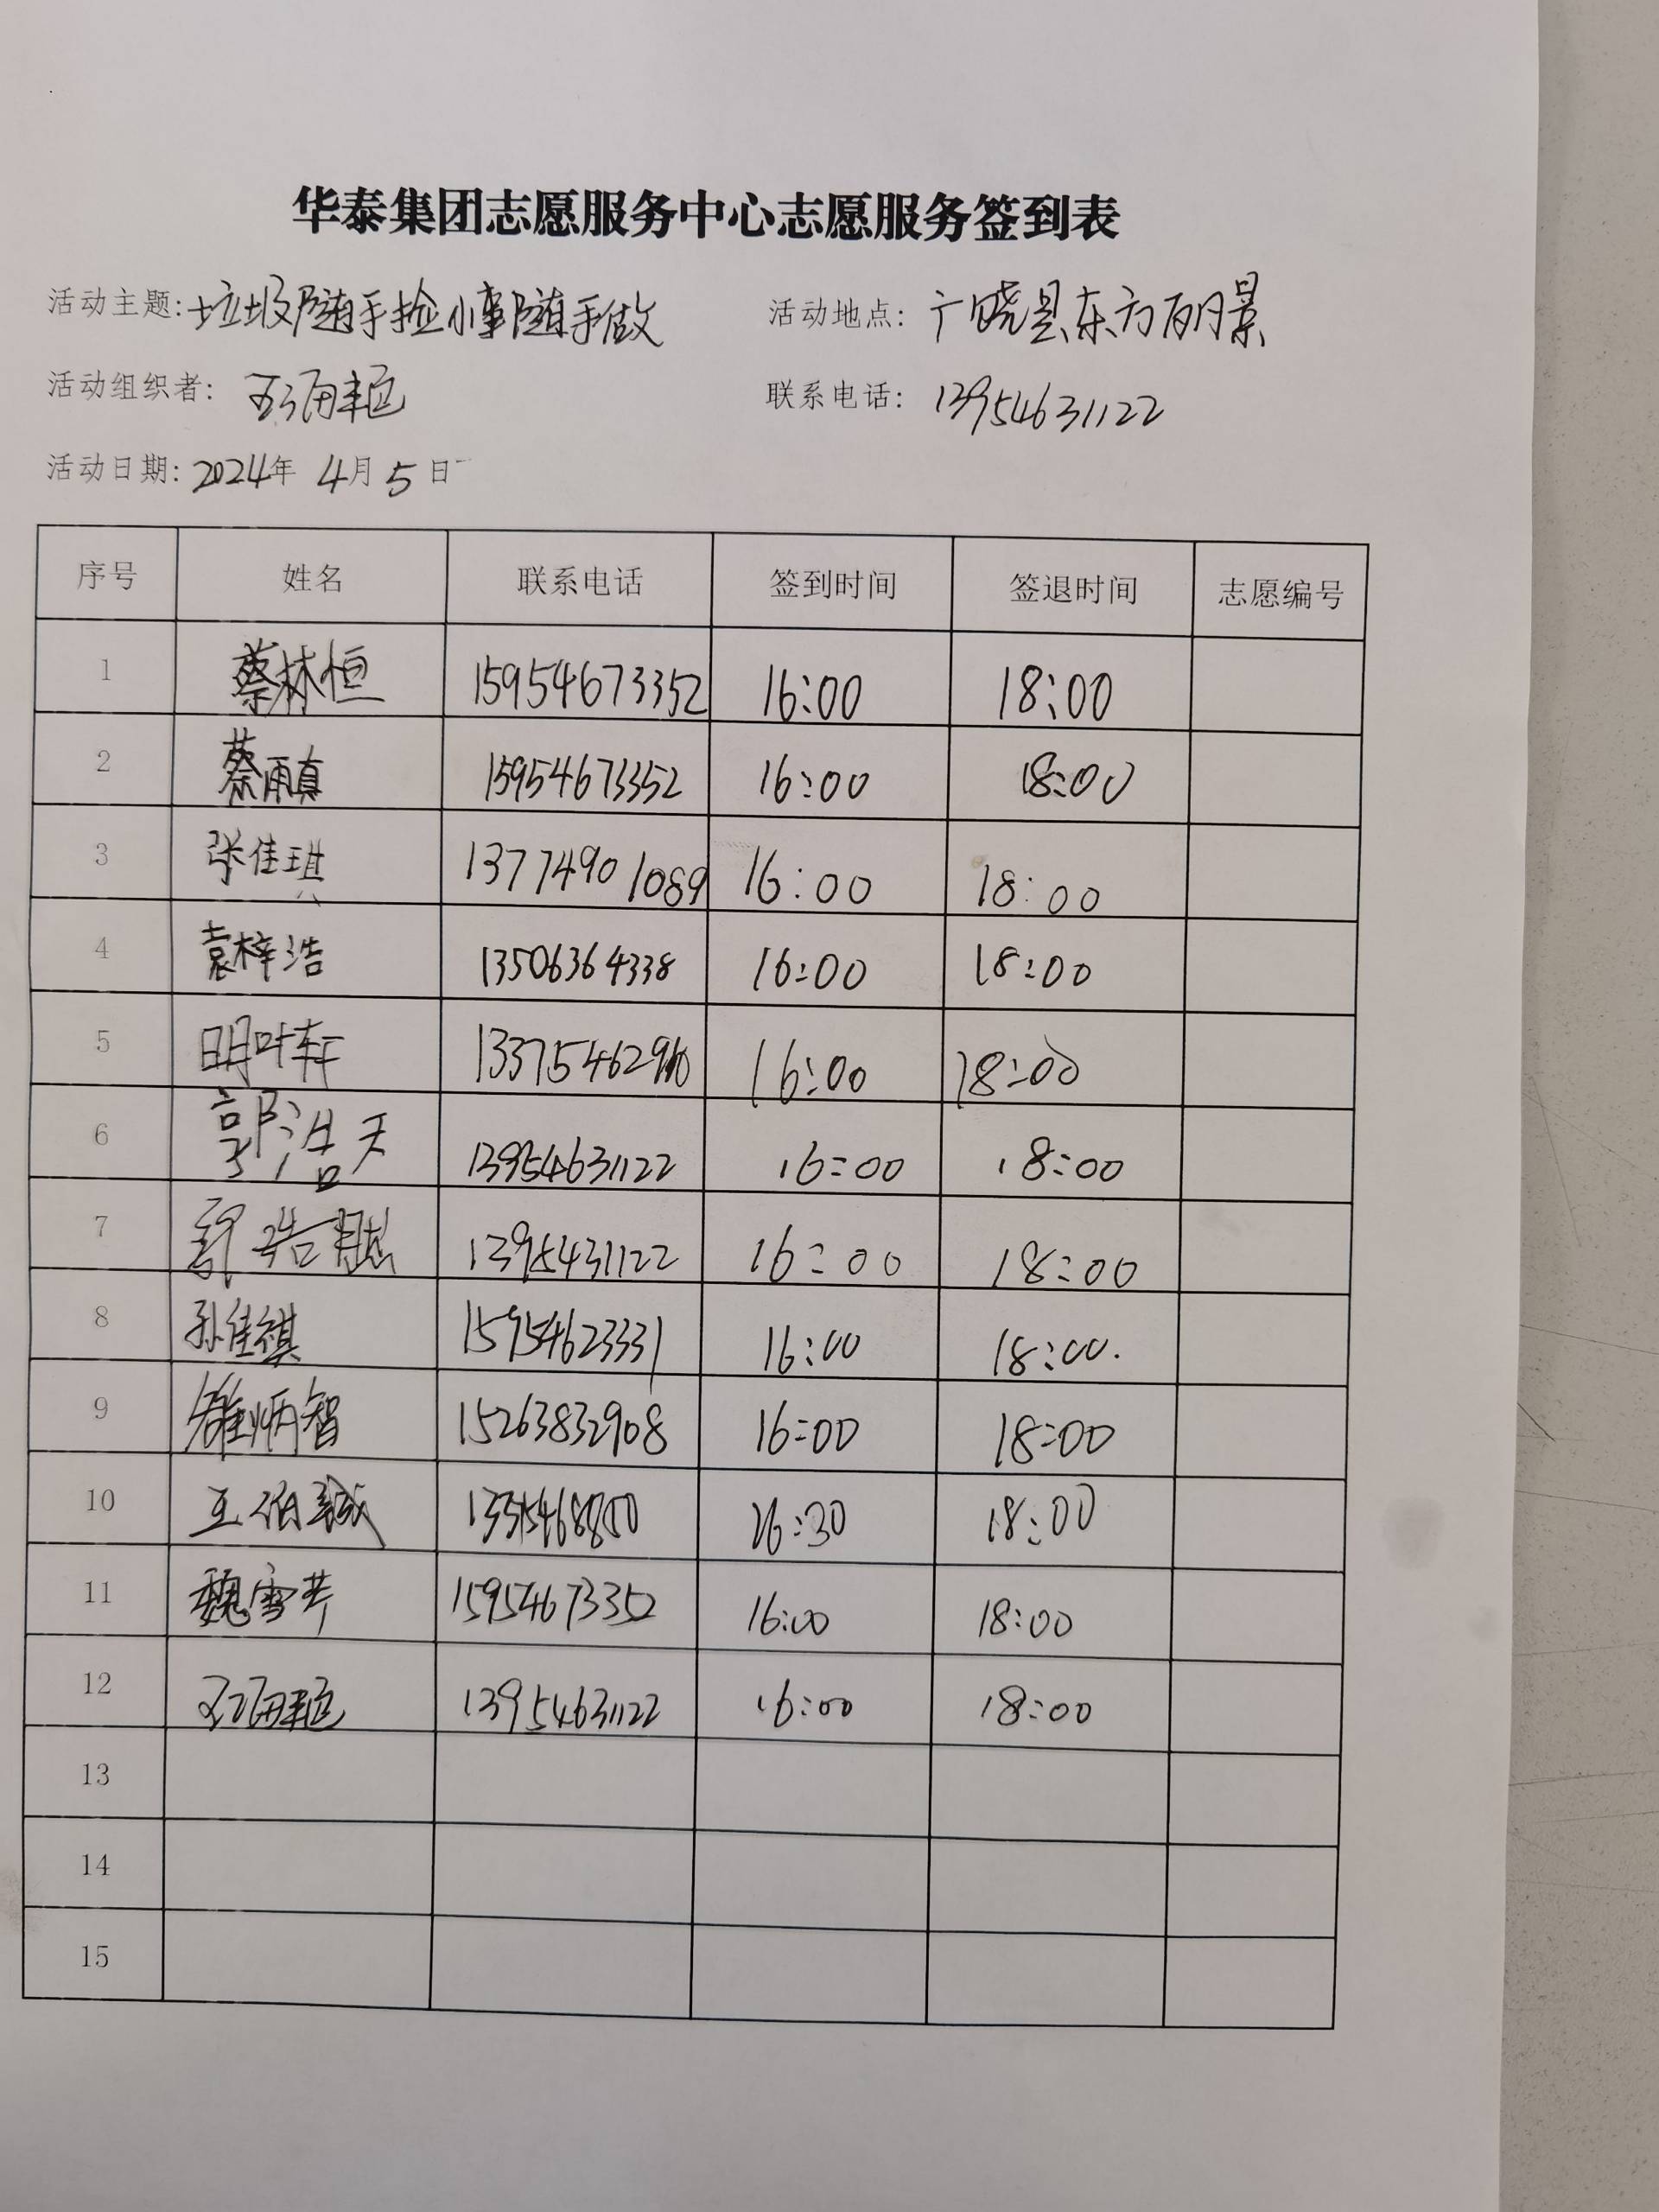 华泰集团志愿服务中心志愿服务签到表
活动主题:垃圾随手捡小事随手做 活动地点: 广饶县东方丽景
活动组织者: 联系电话: 13954631122
活动日期: 2024年 4月 5日
序号 姓名 联系电话 签到时间 签退时间 志愿编号
1 蔡林恒 15954673352 16:00 18:00
2 蔡雨真 15954673352 16:00 18:00
3 张佳琪 13774901089 16:00 18:00
4 袁梓浩 13506364338 16:00 18:00
5 明叶轩 16:00 18:00
6 郭浩天 13954631122 16:00 18:00
7 1395431122 16:00 18:00
8 孙佳祺 15954623331 16:00 18:00.
9 雒炳智 15263832908 16:00 18:00
10 王伯诚 16:30 18:00
11 魏雪芹 15954673352 16:00 18:00
12 13954631122 16:00 18:00
13
14
15